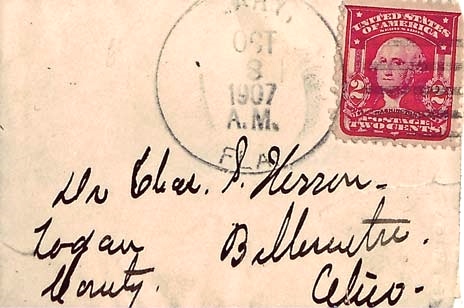 OCT
8
1907
A.M.
FLA.
UNITED STATES
OF AMERICA
SERIES 1902
2 2
WASHINGTON
POSTAGE
TWO CENTS
Dr Chas. S. Herron.
Logan Bellecentre.
County. Ohio.